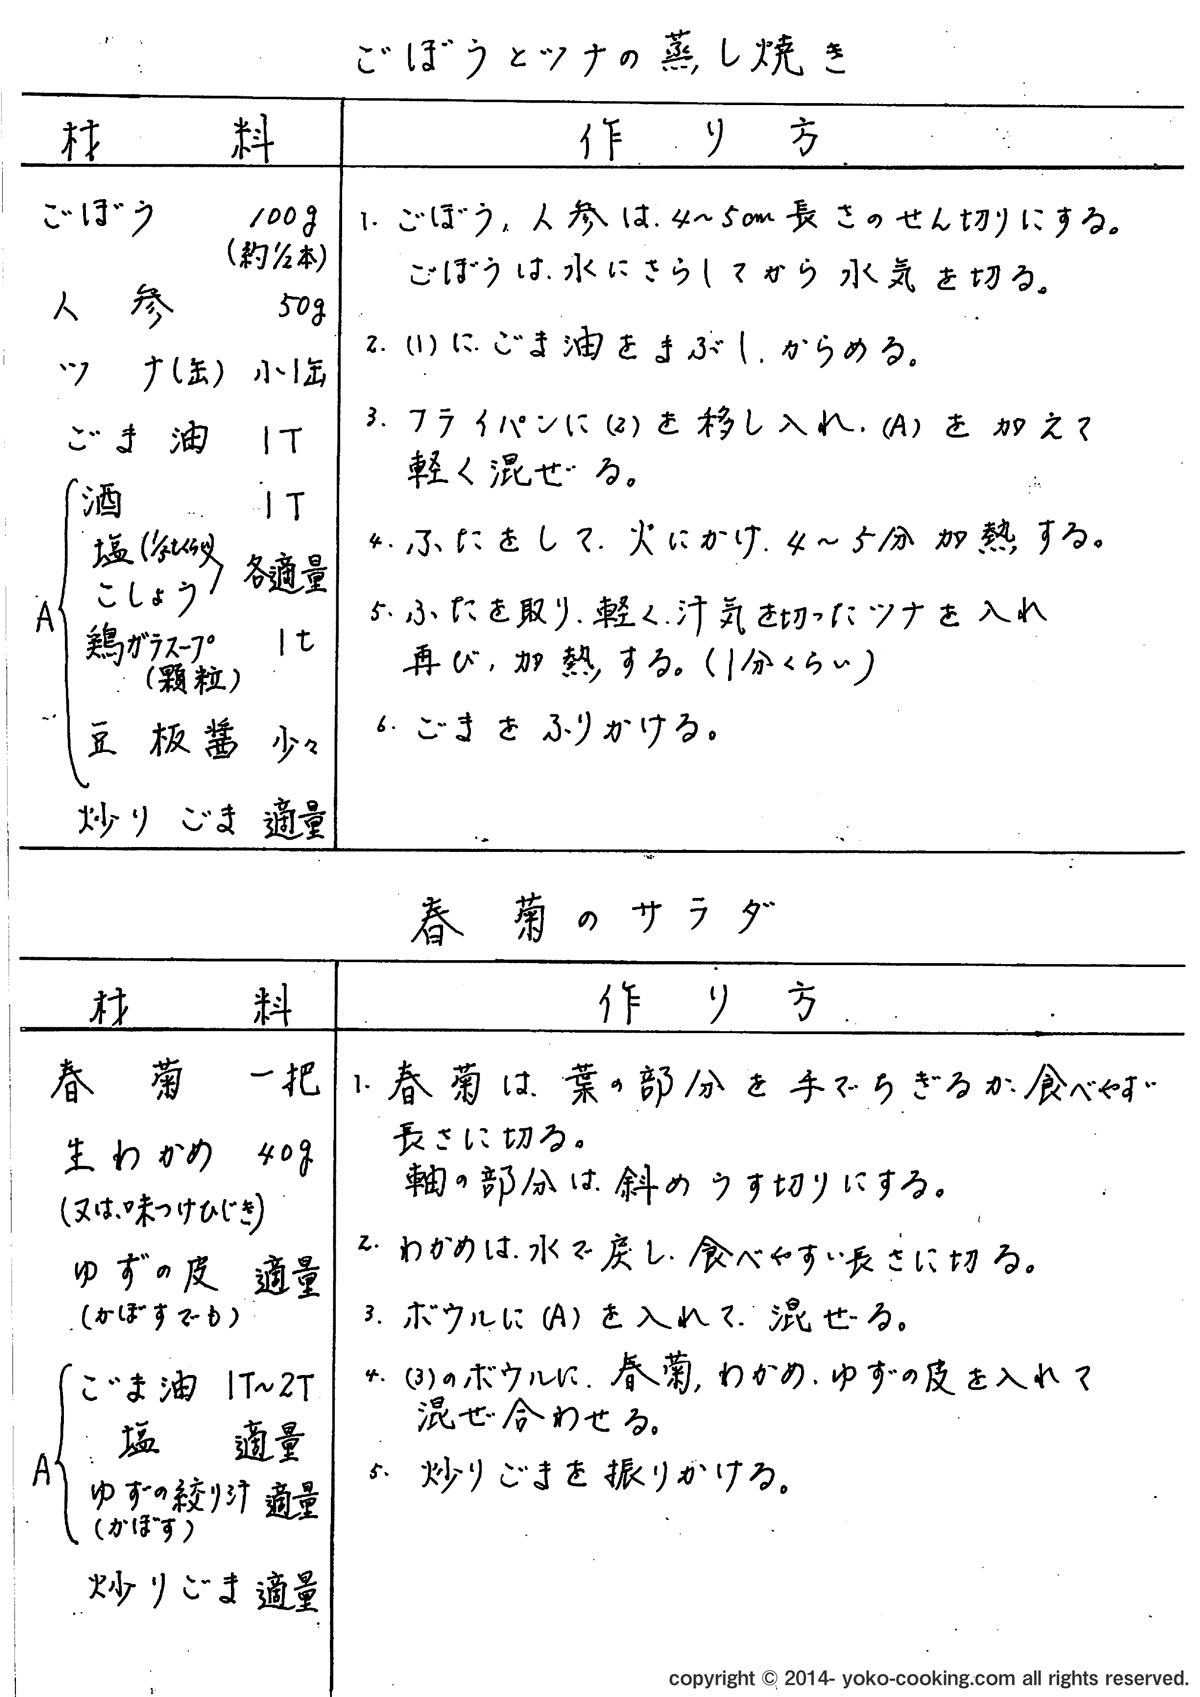 ごぼうとツナの蒸し焼き
材料
作り方
ごぼう 100g
(約1/2本)
人参 50g
ツナ(缶) 小1缶
ごま油 1T
A
酒 1T
塩
こしょう
各適量
鶏ガラスープ 1t
(顆粒)
豆板醤 少々
炒りごま 適量
1. ごぼう、人参は、4〜5cm長さのせん切りにする。
ごぼうは、水にさらしてから水気を切る。
2. (1)に、ごま油をまぶし、からめる。
3. フライパンに(2)を移し入れ、(A)を加えて
軽く混ぜる。
4. ふたをして、火にかけ、4〜5分加熱する。
5. ふたを取り、軽く、汁気を切ったツナを入れ
再び、加熱する。(1分くらい)
6. ごまをふりかける。
春菊のサラダ
材料
作り方
春菊 一把
生わかめ 40g
(又は、味つけひじき)
ゆずの皮 適量
(かぼすでも)
A
ごま油 1T〜2T
塩 適量
ゆずの絞り汁 適量
(かぼす)
炒りごま 適量
1. 春菊は、葉の部分を手でちぎるか、食べやすい
長さに切る。
軸の部分は、斜めうす切りにする。
2. わかめは、水で戻し、食べやすい長さに切る。
3. ボウルに(A)を入れて、混ぜる。
4. (3)のボウルに、春菊、わかめ、ゆずの皮を入れて
混ぜ合わせる。
5. 炒りごまを振りかける。
copyright © 2014- yoko-cooking.com all rights reserved.